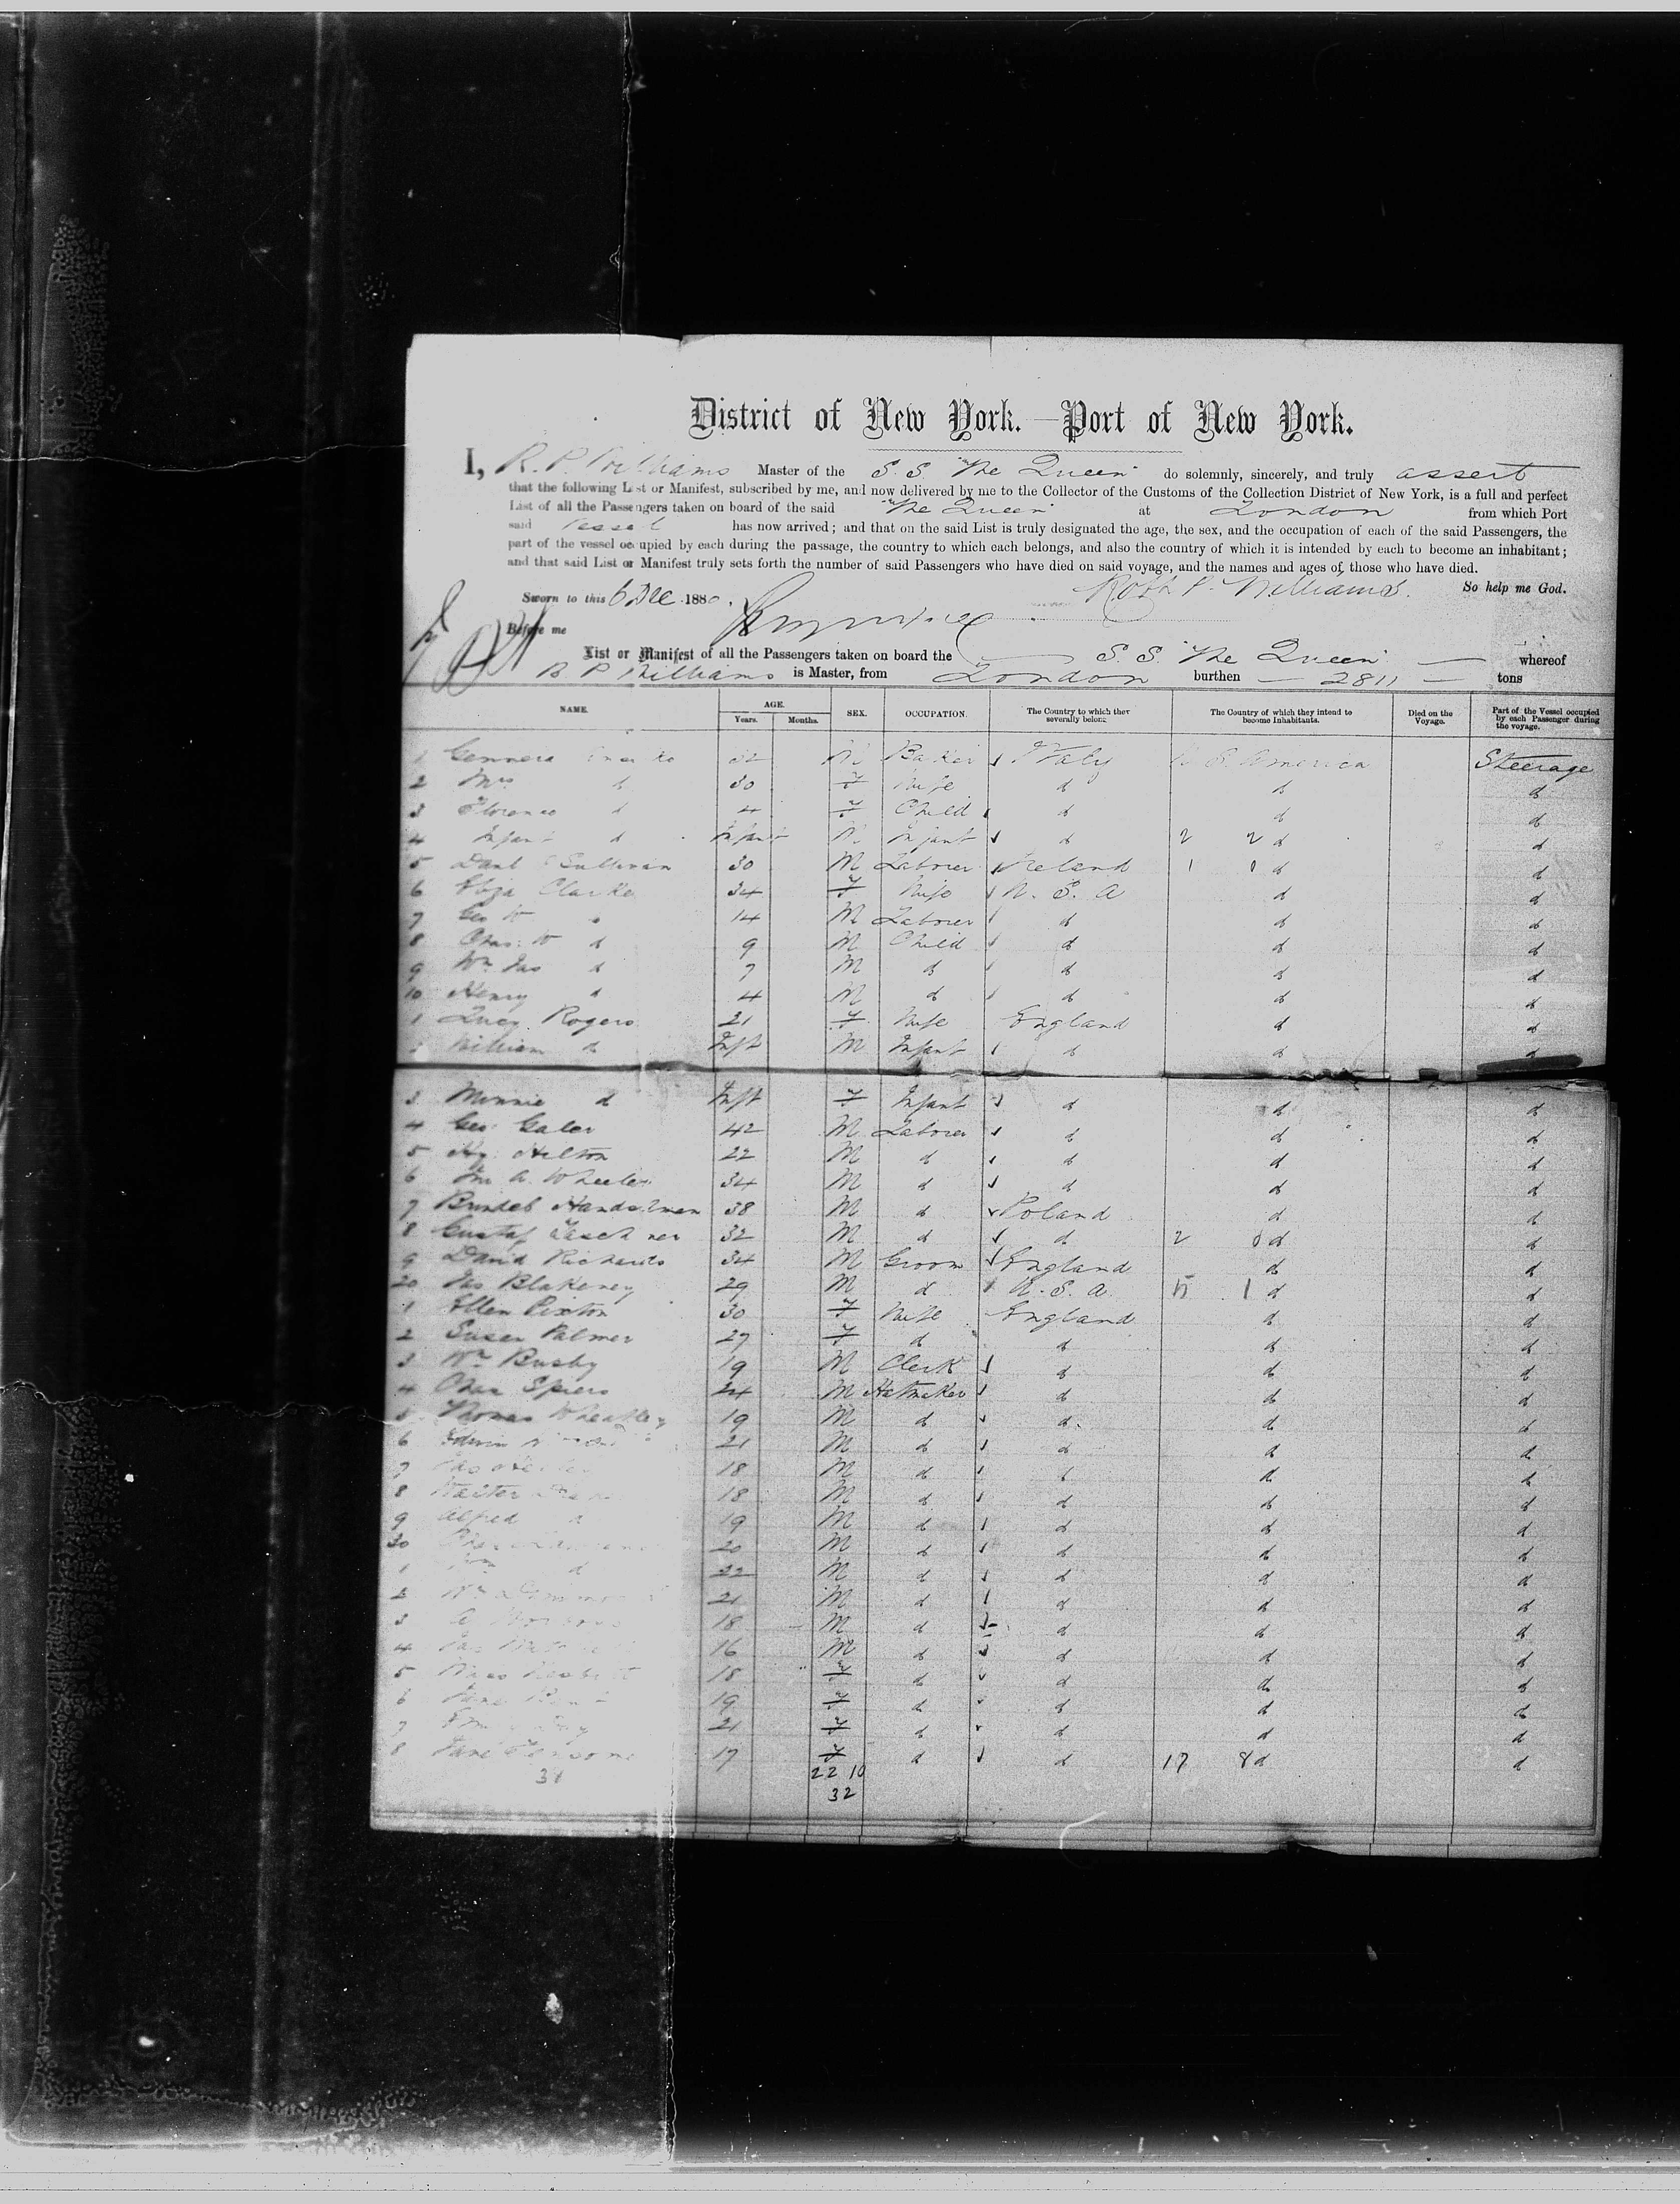 District of New York.—Port of New York.
I, R. P. Williams Master of the S. S. "The Queen" do solemnly, sincerely, and truly assert
that the following List or Manifest, subscribed by me, and now delivered by me to the Collector of the Customs of the Collection District of New York, is a full and perfect
List of all the Passengers taken on board of the said "The Queen" at London from which Port
said Vessel has now arrived; and that on the said List is truly designated the age, the sex, and the occupation of each of the said Passengers, the
part of the vessel occupied by each during the passage, the country to which each belongs, and also the country of which it is intended by each to become an inhabitant;
and that said List or Manifest truly sets forth the number of said Passengers who have died on said voyage, and the names and ages of those who have died.
Sworn to this 6 Dec 1880. Robt P. Williams. So help me God.
Before me
List or Manifest of all the Passengers taken on board the S. S. "The Queen" whereof
R P Williams is Master, from London burthen — 2811 — tons
NAME. AGE. Years. Months. SEX. OCCUPATION. The Country to which they severally belong. The Country of which they intend to become Inhabitants. Died on the Voyage. Part of the Vessel occupied by each Passenger during the voyage.
1 Gennera 32 M Baker Italy U S America Steerage
2 Mrs d 30 F Wife d d d
3 Florence d 4 F Child d d d
4 Infant d Infant M Infant d 2 2 d d
5 Danl O'Sullivan 30 M Laborer Ireland 1 1 d d
6 Eliza Clarke 34 F Wife U. S. A d d
7 Geo W d 14 M Laborer d d d
8 Chas. W d 9 M Child d d d
9 Wm Jas d 7 M d d d d
10 Henry d 4 M d d d d
1 Lucy Rogers 21 F Wife England d d
2 William d Inft M Infant d d d
3 Minnie d Inft F Infant d d d
4 Geo. Galer 42 M Laborer d d d
5 Hy. Hilton 22 M d d d d
6 Wm A. Wheeler 34 M d d d d
7 Handelman 38 M d Poland d d
8 Gustaf 32 M d d 2 0 d d
9 David Richards 34 M Groom England d d
20 Jas Blakeney 29 M d U. S. A. 1 d d
1 Ellen Pexton 30 F Wife England d d
2 Susan Palmer 27 F d d d d
3 Wm Busby 19 M Clerk d d d
4 Chas Spiers 24 M Hatmaker d d d
5 Thomas Wheatley 19 M d d d d
6 Edwin 21 M d d d d
7 18 M d d d d
8 Walter 18 M d d d d
9 Alfred d 19 M d d d d
30 20 M d d d d
1 Wm d 22 M d d d d
2 Wm 21 M d d d d
3 18 M d d d d
4 16 M d d d d
5 18 F d d d d
6 Jane 19 F d d d d
7 21 F d d d d
8 Jane 17 F d d 17 8 d d
22 10
32